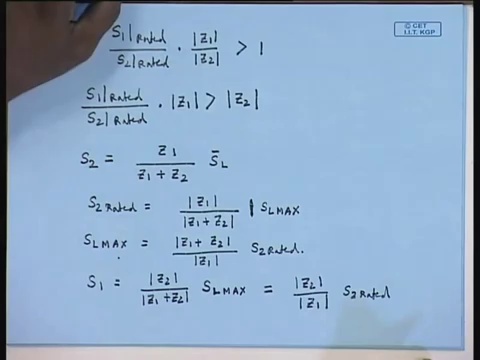 © CET
I.I.T. KGP
S1|Rated / S2|Rated · |Z1| / |Z2| > 1
S1|Rated / S2|Rated · |Z1| > |Z2|
S2 = Z1 / (Z1 + Z2) S̄L
S2 Rated = |Z1| / |Z1 + Z2| | SLMAX
SLMAX = |Z1 + Z2| / |Z1| S2 Rated.
S1 = |Z2| / |Z1 + Z2| SLMAX = |Z2| / |Z1| S2 Rated